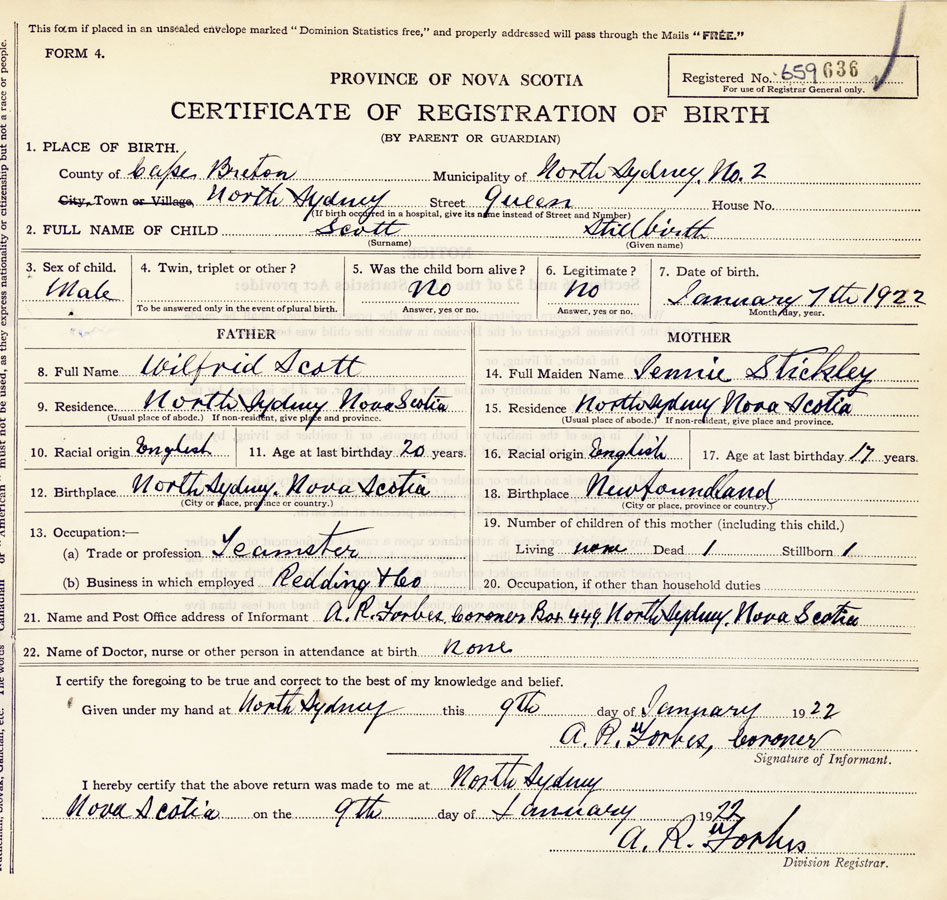 This form if placed in an unsealed envelope marked "Dominion Statistics free," and properly addressed will pass through the Mails "FREE."
FORM 4.
Registered No. 659636
For use of Registrar General only.
PROVINCE OF NOVA SCOTIA
CERTIFICATE OF REGISTRATION OF BIRTH
(BY PARENT OR GUARDIAN)
1. PLACE OF BIRTH.
County of Cape Breton Municipality of North Sydney, No. 2
City, Town or Village, North Sydney Street Queen House No.
(If birth occurred in a hospital, give its name instead of Street and Number)
2. FULL NAME OF CHILD Scott Stillbirth
(Surname) (Given name)
3. Sex of child. 4. Twin, triplet or other? 5. Was the child born alive? 6. Legitimate? 7. Date of birth.
Male No No January 7th 1922
To be answered only in the event of plural birth. Answer, yes or no. Answer, yes or no. Month, day, year.
FATHER MOTHER
8. Full Name Wilfrid Scott 14. Full Maiden Name Jennie Stickley
9. Residence North Sydney Nova Scotia 15. Residence North Sydney Nova Scotia
(Usual place of abode.) If non-resident, give place and province. (Usual place of abode.) If non-resident, give place and province.
10. Racial origin English 11. Age at last birthday 20 years. 16. Racial origin English 17. Age at last birthday 17 years.
12. Birthplace North Sydney. Nova Scotia 18. Birthplace Newfoundland
(City or place, province or country.) (City or place, province or country.)
13. Occupation:— 19. Number of children of this mother (including this child.)
(a) Trade or profession Teamster Living none Dead 1 Stillborn 1
(b) Business in which employed Redding & Co 20. Occupation, if other than household duties
21. Name and Post Office address of Informant A. R. Forbes, Coroner Box 449, North Sydney, Nova Scotia
22. Name of Doctor, nurse or other person in attendance at birth None
I certify the foregoing to be true and correct to the best of my knowledge and belief.
Given under my hand at North Sydney this 9th day of January 1922
A. R. Forbes, Coroner
Signature of Informant.
I hereby certify that the above return was made to me at North Sydney
Nova Scotia on the 9th day of January 1922
A. R. Forbes
Division Registrar.